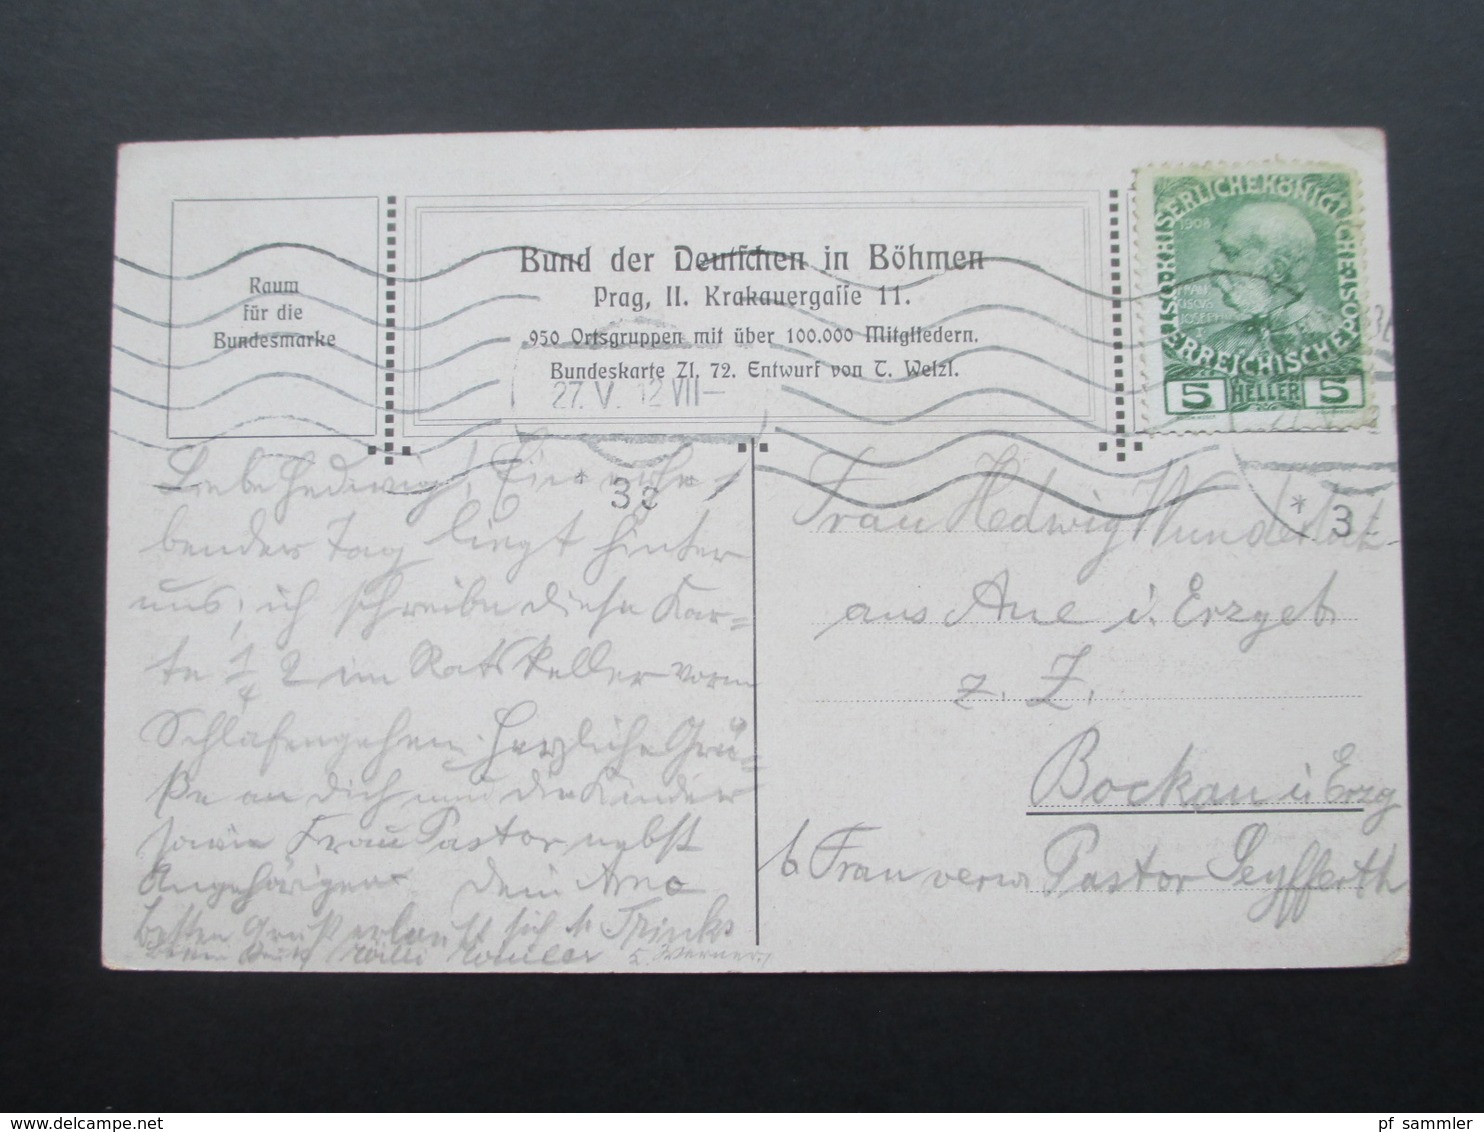 Raum
für die
Bundesmarke
Bund der Deutschen in Böhmen
Prag, II. Krakauergasse 11.
950 Ortsgruppen mit über 100.000 Mitgliedern.
Bundeskarte Zl. 72. Entwurf von T. Welzl.
KAISERLICHE KÖNIGLICHE ÖSTERREICHISCHE POST
1908
FRAN
CISCVS
JOSEPHVS
5 HELLER 5
27. V. 12 VII
* 3c *
* 3
Liebe Hedwig! Ein
bender Tag liegt hinter
uns, ich schreibe diese Kar=
te 1/4 2 im Ratskeller vorm
Schlafengehen. Herzliche Grü=
ße an dich und die Kinder
sowie Frau Pastor nebst
Angehörigen. Dein Arno
Besten Gruß erlaubt sich
Willi
Werner
Frau Hedwig Wunderlich
aus Aue i. Erzgeb.
z. Z.
Bockau i. Erzg
b. Frau verw. Pastor Seyfferth
pf_sammler
www.delcampe.net